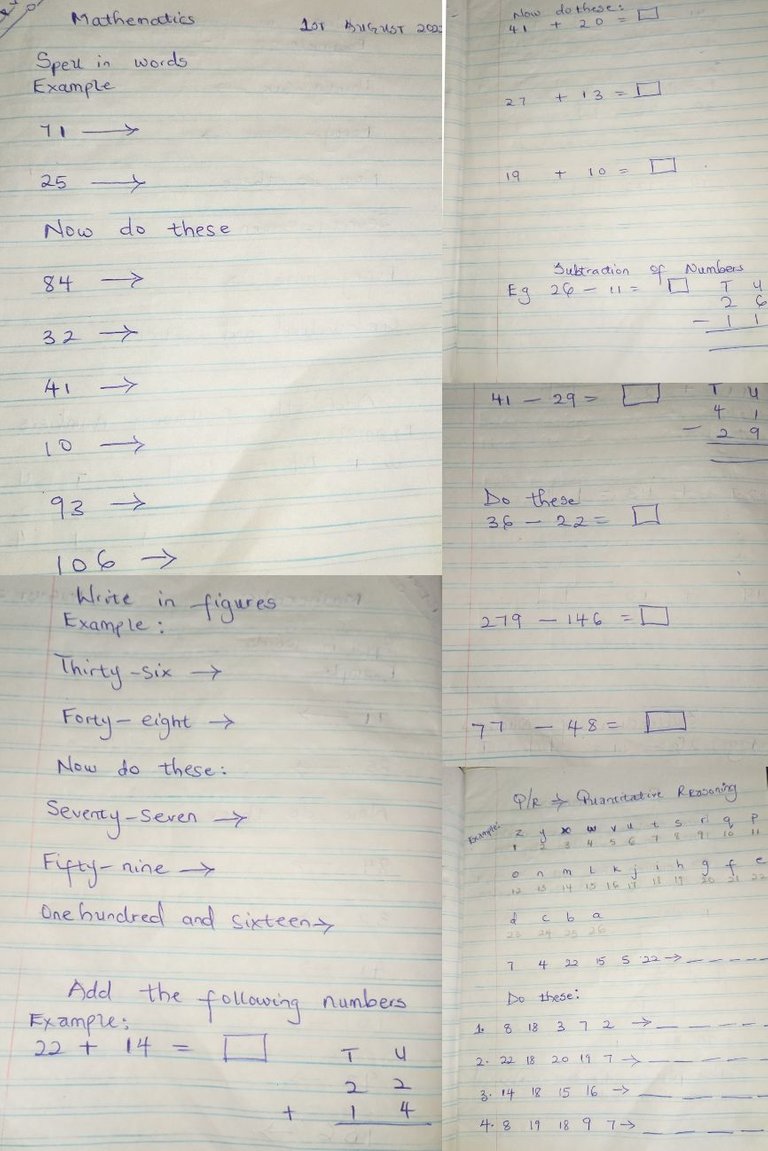 Mathematics
1st August
Spell in words
Example
71 →
25 →
Now do these
84 →
32 →
41 →
10 →
93 →
106 →
Write in figures
Example:
Thirty-six →
Forty-eight →
Now do these:
Seventy-seven →
Fifty-nine →
One hundred and sixteen →
Add the following numbers
Example:
22 + 14 = □
T U
2 2
+ 1 4
Now do these:
41 + 20 = □
27 + 13 = □
19 + 10 = □
Subtraction of Numbers
Eg 26 - 11 = □
T U
2 6
- 1 1
41 - 29 = □
T U
4 1
- 2 9
Do these
36 - 22 = □
279 - 146 = □
77 - 48 = □
Q/R → Quantitative Reasoning
Example: z y x w v u t s r q p
1 2 3 4 5 6 7 8 9 10 11
o n m l k j i h g f e
12 13 14 15 16 17 18 19 20 21 22
d c b a
23 24 25 26
7 4 22 15 5 22 → _ _ _ _ _ _
Do these:
1. 8 18 3 7 2 → _ _ _ _ _
2. 22 18 20 19 7 → _ _ _ _ _
3. 14 18 15 16 → _ _ _ _
4. 8 19 18 9 7 → _ _ _ _ _